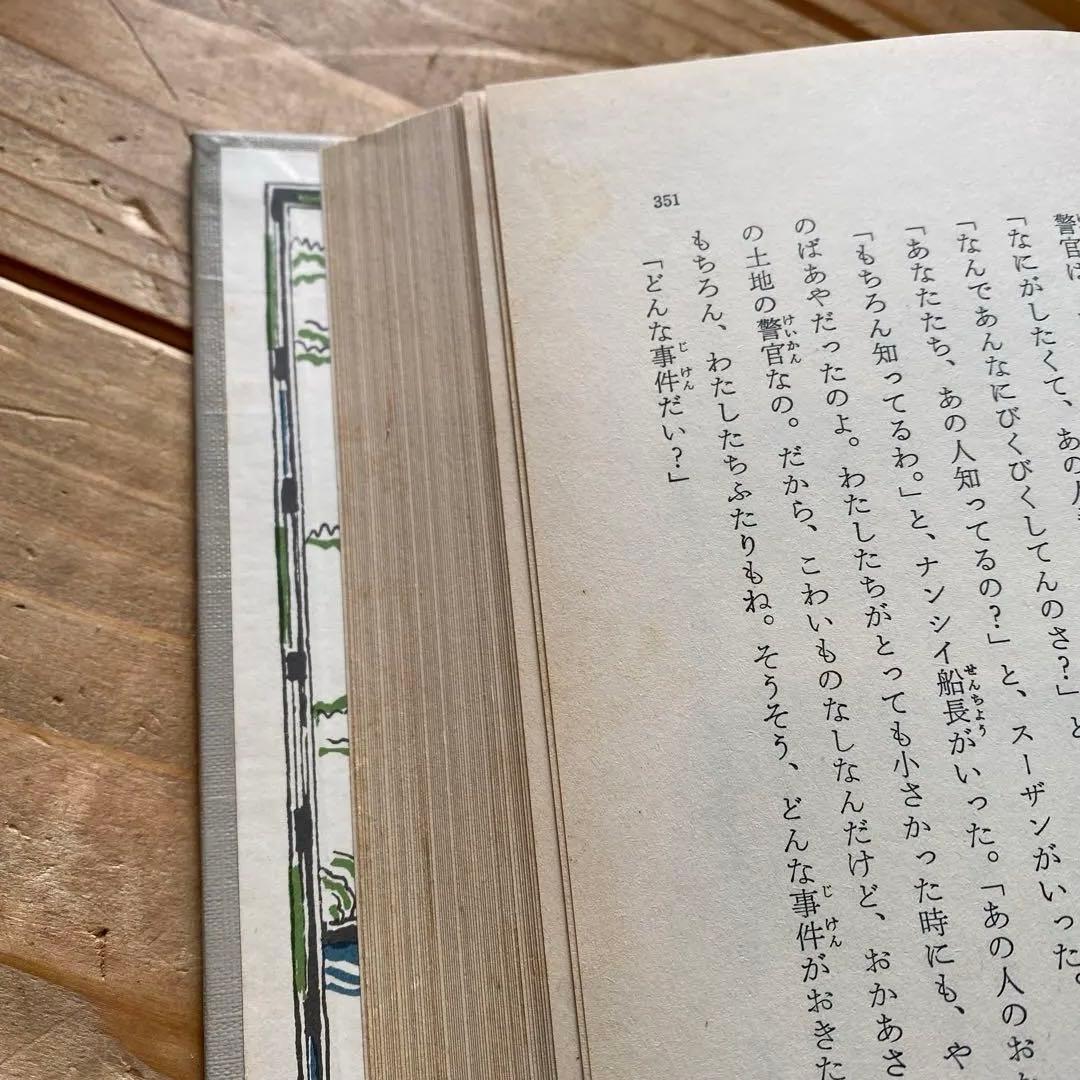 351
警官は、
「なにがしたくて、あの人
「なんであんなにびくびくしてんのさ？」と
「あなたたち、あの人知ってるの？」と、スーザンがいった。
「もちろん知ってるわ。」と、ナンシイ船長がいった。「あの人のおか
のばあやだったのよ。わたしたちがとっても小さかった時にも、や
の土地の警官なの。だから、こわいものなしなんだけど、おかあさ
もちろん、わたしたちふたりもね。そうそう、どんな事件がおきた
「どんな事件だい？」